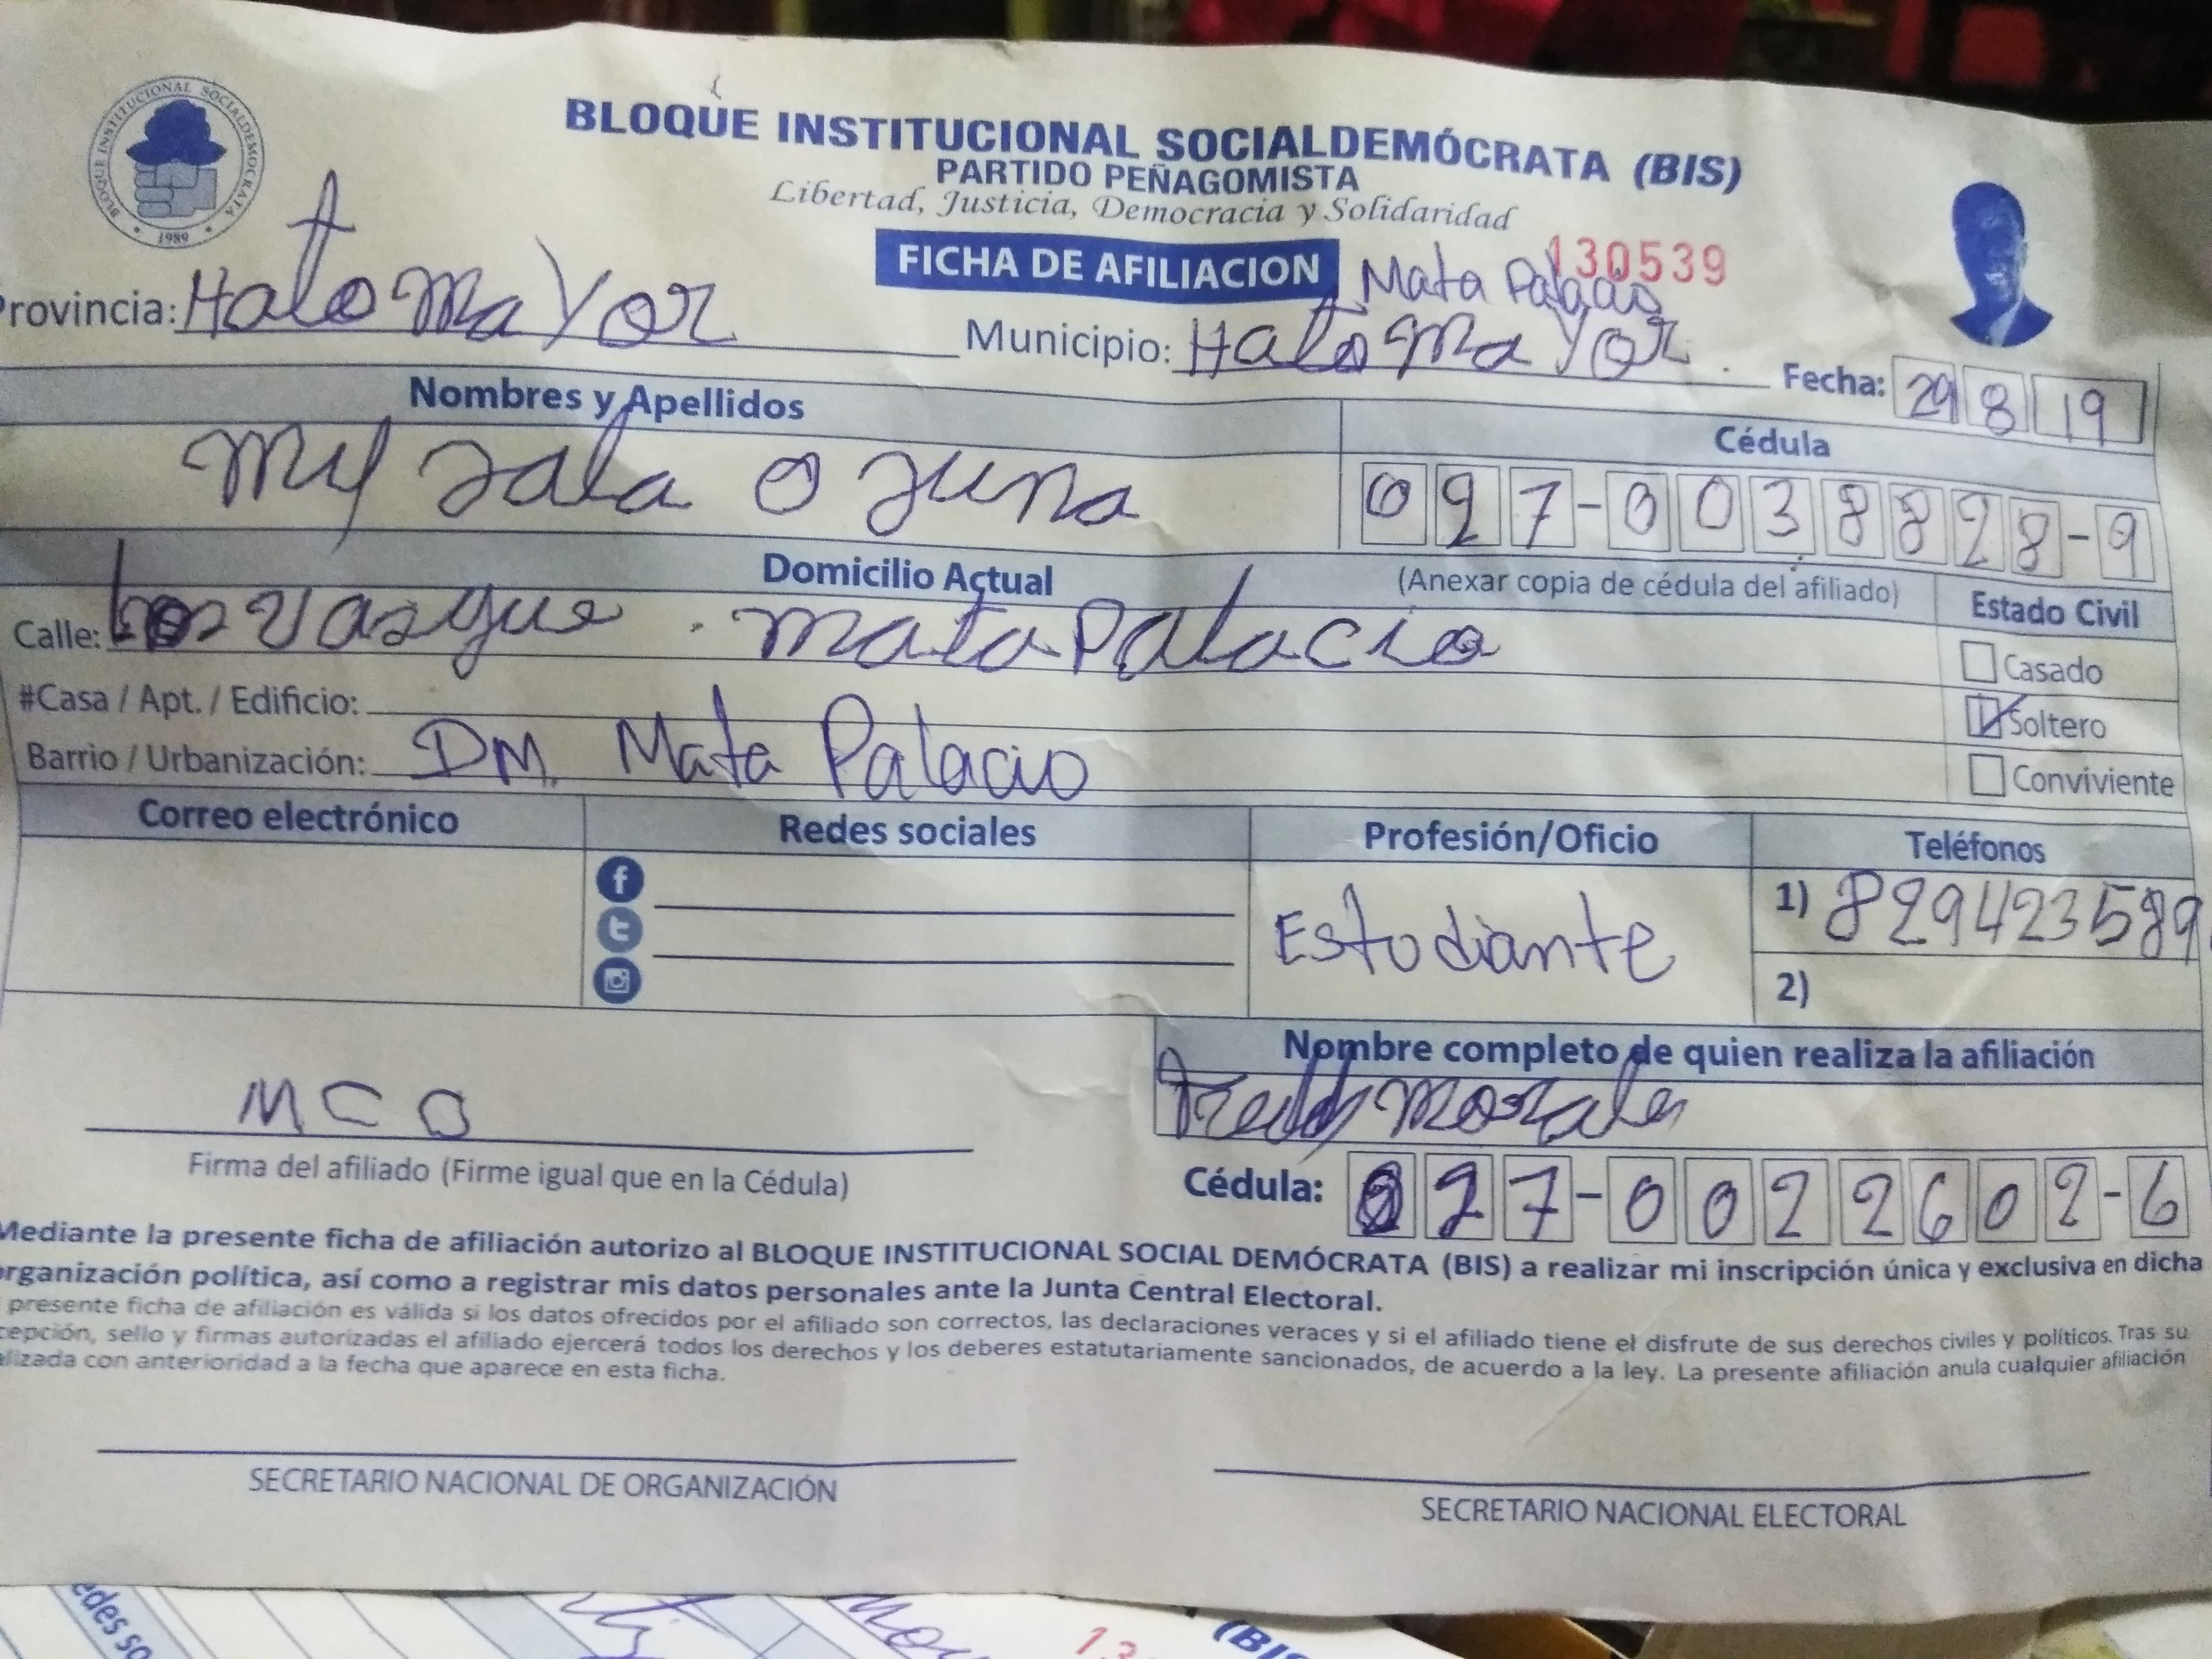 BLOQUE INSTITUCIONAL SOCIALDEMOCRATA
1989
BLOQUE INSTITUCIONAL SOCIALDEMÓCRATA (BIS)
PARTIDO PEÑAGOMISTA
Libertad, Justicia, Democracia y Solidaridad
FICHA DE AFILIACION
130539
Mata Palacio
Provincia: Hato Mayor
Municipio: Hato Mayor
Fecha: 29 8 19
Nombres y Apellidos
Cédula
Ozuna
027-0038828-9
Domicilio Actual
(Anexar copia de cédula del afiliado)
Estado Civil
Calle: Los Vasque. Mata Palacio
Casado
#Casa / Apt. / Edificio:
Soltero
Barrio / Urbanización: DM. Mata Palacio
Conviviente
Correo electrónico
Redes sociales
Profesión/Oficio
Teléfonos
Estudiante
1) 829423589
2)
Nombre completo de quien realiza la afiliación
Freddy Morales
MCO
Firma del afiliado (Firme igual que en la Cédula)
Cédula: 027-0022602-6
Mediante la presente ficha de afiliación autorizo al BLOQUE INSTITUCIONAL SOCIAL DEMÓCRATA (BIS) a realizar mi inscripción única y exclusiva en dicha
organización política, así como a registrar mis datos personales ante la Junta Central Electoral.
presente ficha de afiliación es válida si los datos ofrecidos por el afiliado son correctos, las declaraciones veraces y si el afiliado tiene el disfrute de sus derechos civiles y políticos. Tras su
cepción, sello y firmas autorizadas el afiliado ejercerá todos los derechos y los deberes estatutariamente sancionados, de acuerdo a la ley. La presente afiliación anula cualquier afiliación
alizada con anterioridad a la fecha que aparece en esta ficha.
SECRETARIO NACIONAL DE ORGANIZACIÓN
SECRETARIO NACIONAL ELECTORAL
edes so
13
(BIS